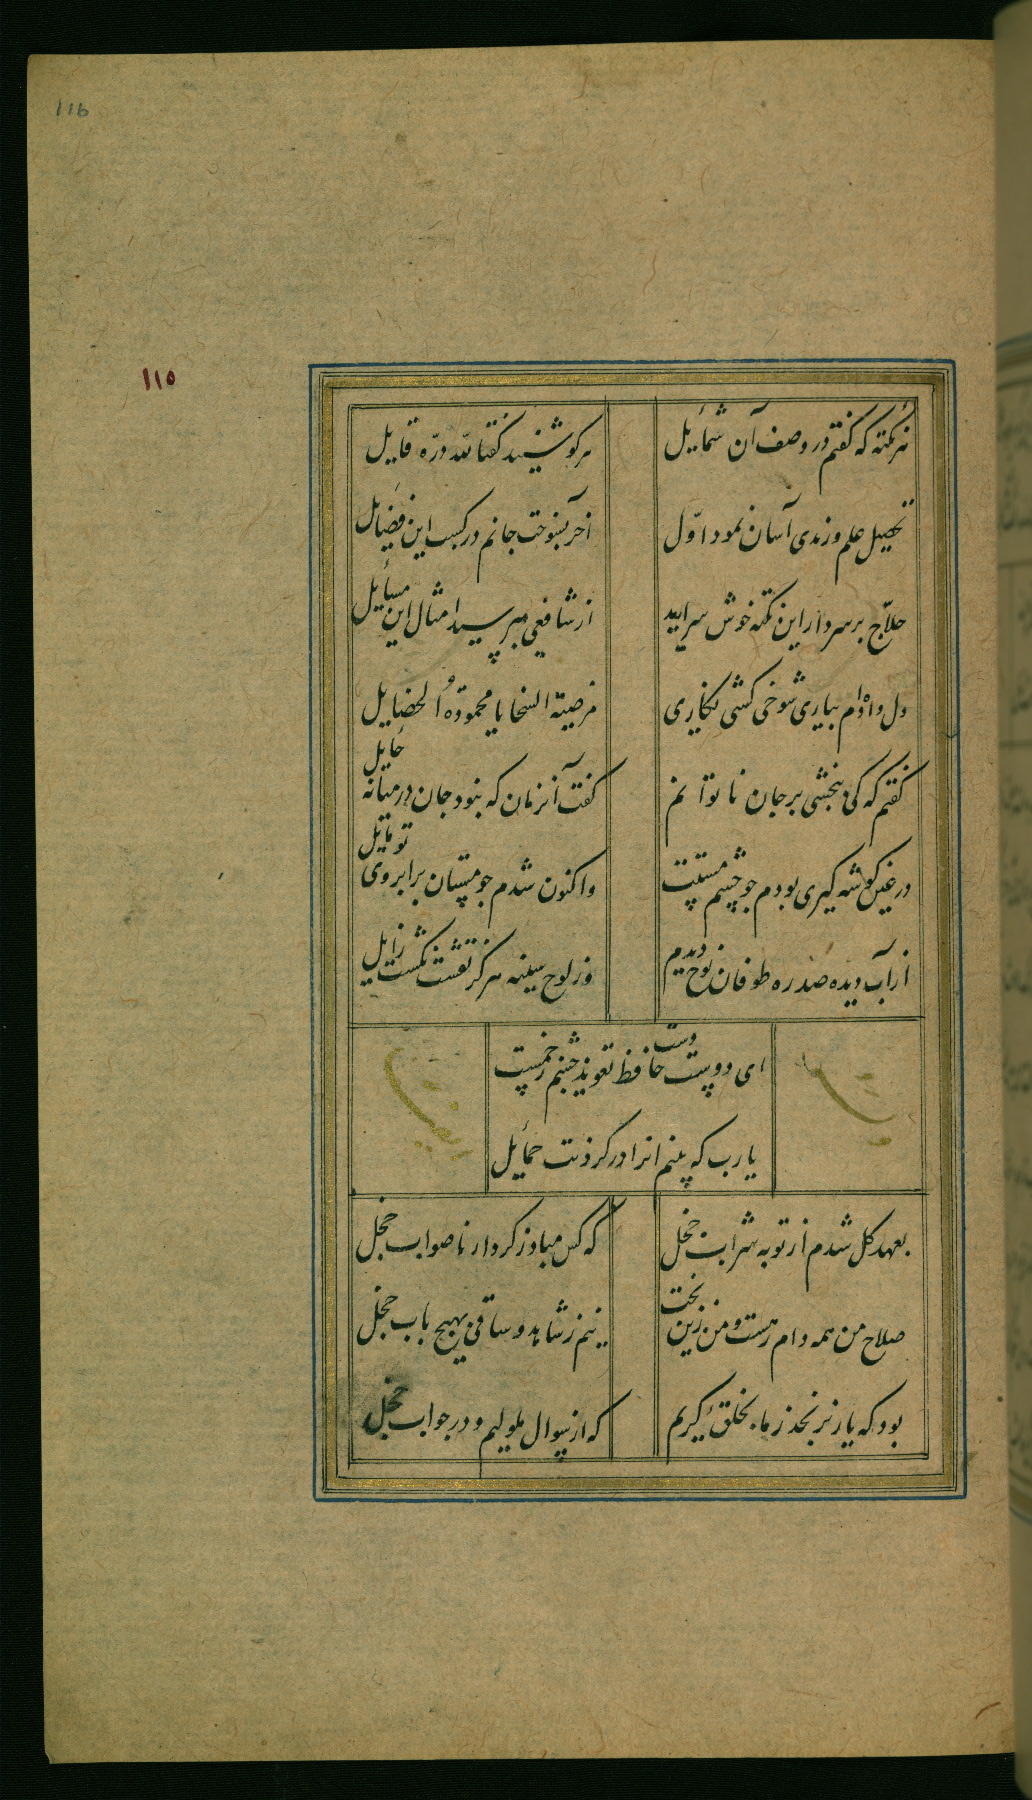 116
۱۱۵
هر نکته که گفتم در وصف آن شمائیل
هر کو شنید گفتا لله درّه قایل
تحصیل علم و رندی آسان نمود اوّل
آخر بسوخت جانم در کسب این فضایل
حلاّج بر سر دار این نکته خوش سراید
از شافعی مپرسید امثال این مسائیل
دل داده‌ام بیاری شوخی کشی نگاری
مرضیة السخایا محمودة الخضایل
گفتم که کی ببخشی بر جان ناتوانم
گفت آنزمان که بنود جان در میانه حایل
در عین گوشه گیری بودم جو چشم مستت
واکنون شدم جو مستان بر ابروی تو مایل
از آب دیده صد ره طوفان نوح دیدم
وز لوح سینه هرگز نقشت نگشت زایل
ای دوست دست حافظ تعویذ چشم زخمست
یا رب که بینم انرا در گردنت حمائیل
بعهد گل شدم از توبه شراب خجل
که کس مباد ز کردار ناصواب خجل
صلاح من همه دام رهست و من زین بخت
نیم ز شاهد و ساقی بهیچ باب خجل
بود که یار نرنجد ز ما بخلق کریم
که از سوال ملولیم و در جواب خجل